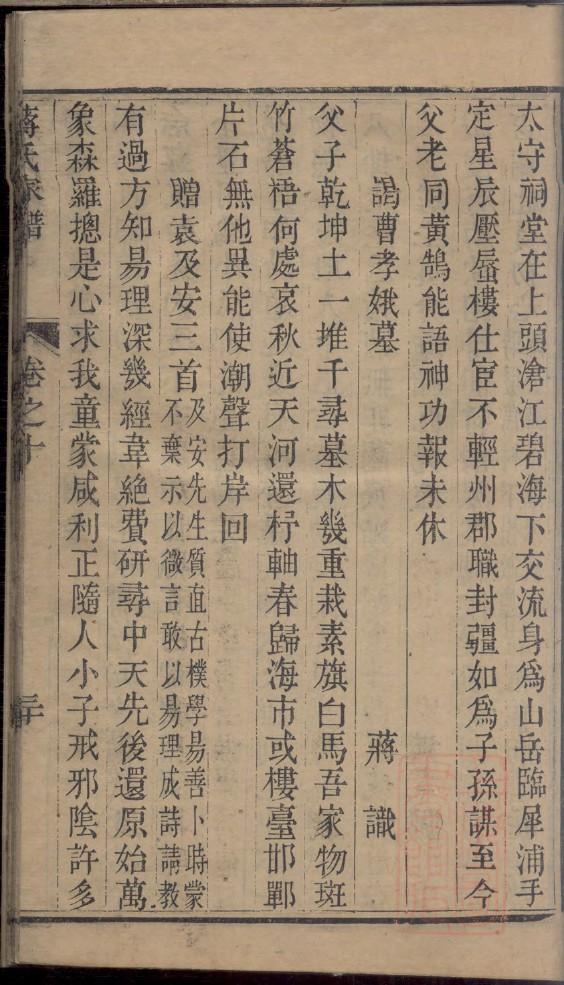 太守祠堂在上頭滄江碧海下交流身爲山岳臨犀浦手
定星辰壓蜃樓仕宦不輕州郡職封疆如爲子孫謀至今
父老同黃鵠能語神功報未休
謁曹孝娥墓 蔣識
父子乾坤土一堆千尋墓木幾重栽素旗白馬吾家物斑
竹蒼梧何處哀秋近天河還杼軸春歸海市或樓臺邯鄲
片石無他異能使潮聲打岸回
贈袁及安三首 及安先生質直古樸學易善卜時蒙
不棄示以微言敢以易理成詩請教
有過方知易理深幾經韋絶費研尋中天先後還原始萬
象森羅摠是心求我童蒙咸利正隨人小子戒邪陰許多
蔣氏家譜 卷之十 三十